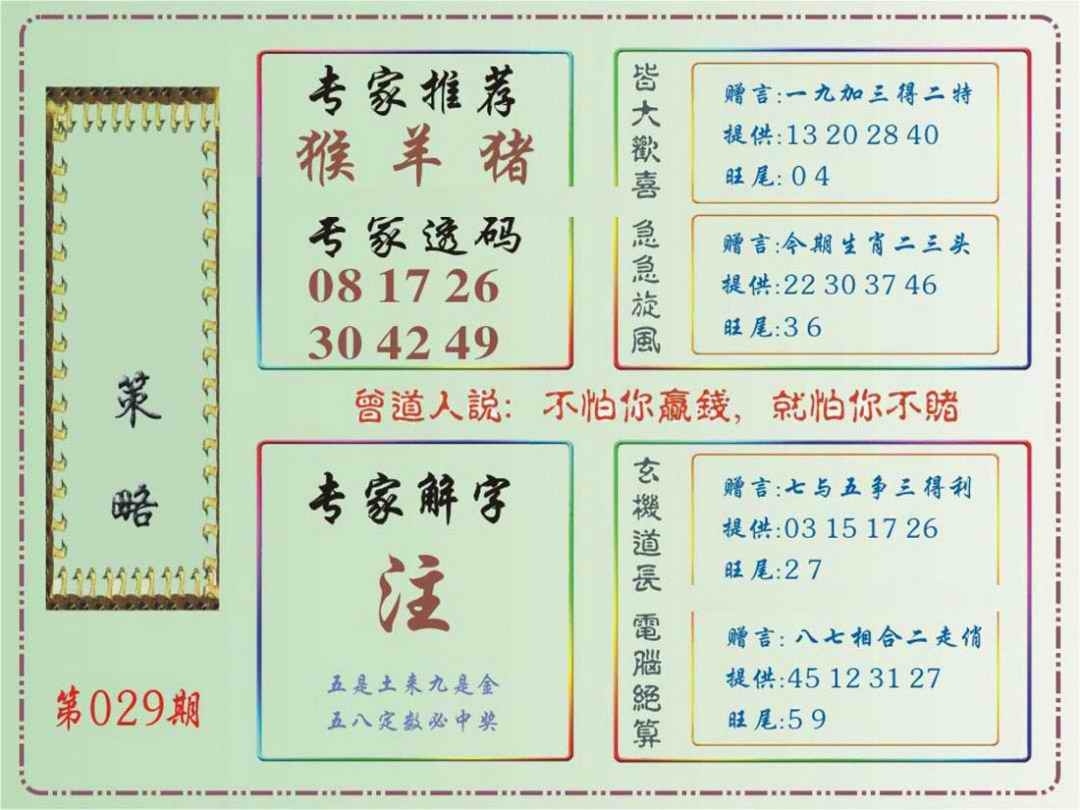 策
略
第029期
专家推荐
猴 羊 猪
专家透码
08 17 26
30 42 49
皆大歡喜
赠言:一九加三得二特
提供:13 20 28 40
旺尾:0 4
急急旋风
赠言:今期生肖二三头
提供:22 30 37 46
旺尾:3 6
曾道人説: 不怕你赢錢, 就怕你不賭
专家解字
注
五是土来九是金
五八定数必中奖
玄機道長
赠言:七与五争三得利
提供:03 15 17 26
旺尾:2 7
電腦絕算
赠言: 八七相合二走俏
提供:45 12 31 27
旺尾:5 9